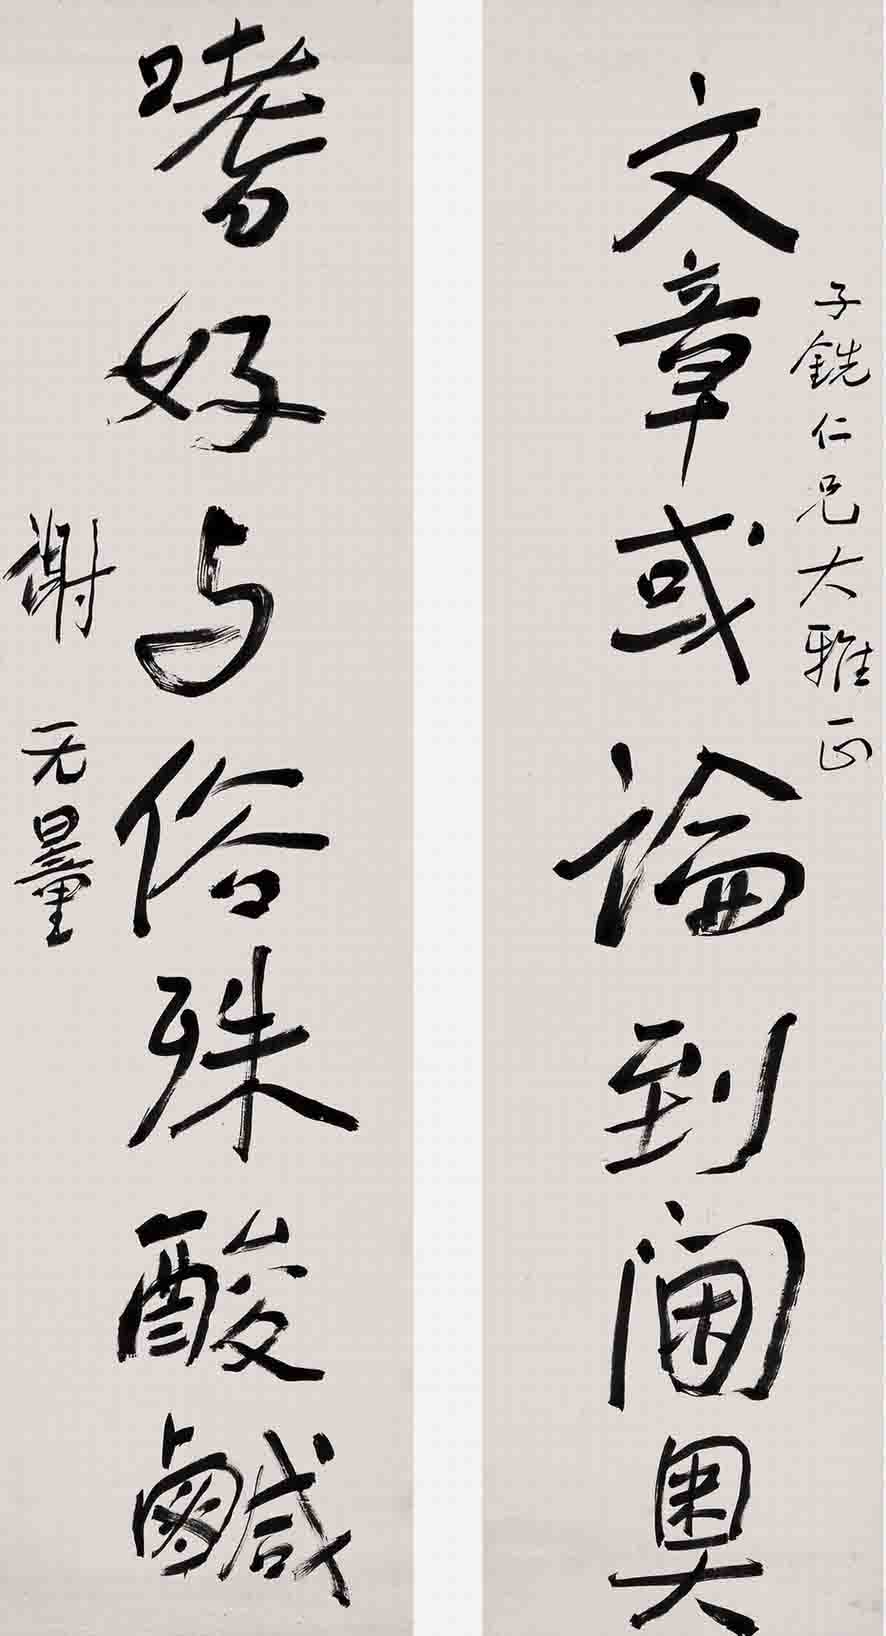 子銑仁兄大雅正
文章或論到閫奧
嗜好与俗殊酸鹹
謝无量